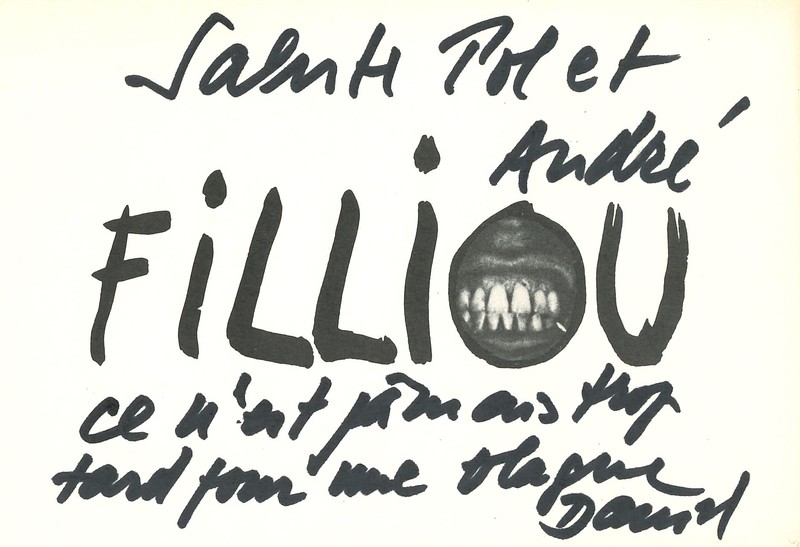 Salute Pol et
André
FiLLiOU
ce n'est jamais trop
tard pour une blague
Daniel